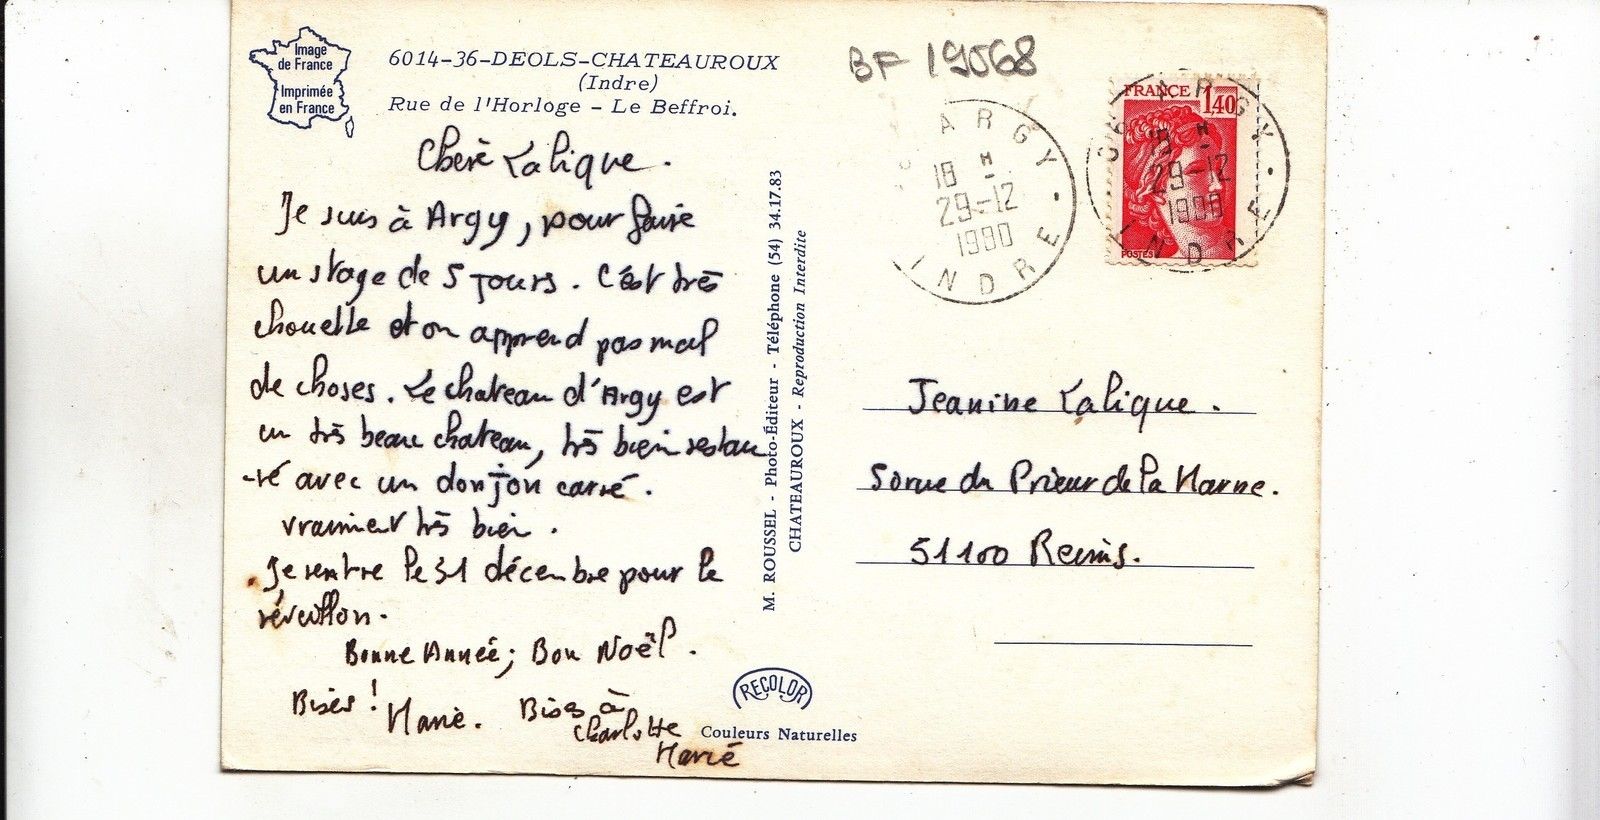 Image
de France
Imprimée
en France
6014-36-DEOLS-CHATEAUROUX
(Indre)
Rue de l'Horloge - Le Beffroi.
Chère Lalique.
Je suis à Argy, pour faire
un stage de 5 jours. C'est très
chouette et on apprend pas mal
de choses. Le chateau d'Argy est
un très beau chateau, très bien restau
-ré avec un donjon carré.
vraiment très bien.
Je rentre le 31 décembre pour le
réveillon.
Bonne Année; Bon Noël.
Bises! Marie. Bises à
Charlotte
Marie
M. ROUSSEL - Photo-Éditeur - Téléphone (54) 34.17.83
CHATEAUROUX - Reproduction Interdite
RECOLOR
Couleurs Naturelles
BF 19068
ARGY
18 H
29-12
1980
INDRE
FRANCE 1,40
POSTES
ARGY
18 H
29-12
1980
INDRE
Jeanine Lalique.
5 rue du Prieur de la Marne.
51100 Reims.